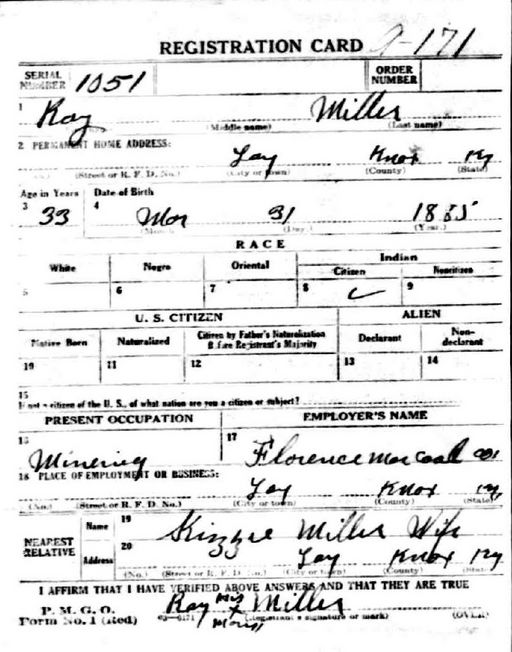 REGISTRATION CARD A-171
SERIAL NUMBER 1051 ORDER NUMBER
1 Ray Miller
(Middle name) (Last name)
2 PERMANENT HOME ADDRESS:
Lay Knox Ky
(No.) (Street or R. F. D. No.) (City or town) (County) (State)
Age in Years Date of Birth
3 33 4 Mar 31 1885
(Month) (Day) (Year)
RACE
White Negro Oriental Indian
Citizen Noncitizen
5 6 7 8 ✓ 9
U. S. CITIZEN ALIEN
Native Born Naturalized Citizen by Father's Naturalization Before Registrant's Majority Declarant Non-declarant
10 11 12 13 14
15
If not a citizen of the U. S., of what nation are you a citizen or subject?
PRESENT OCCUPATION EMPLOYER'S NAME
16 17
Minering Florence Coal Co
18 PLACE OF EMPLOYMENT OR BUSINESS:
Lay Knox Ky
(No.) (Street or R. F. D. No.) (City or town) (County) (State)
NEAREST RELATIVE Name 19 Kizzie Miller Wife
Address 20 33 Lay Knox Ky
(No.) (Street or R. F. D. No.) (City or town) (County) (State)
I AFFIRM THAT I HAVE VERIFIED ABOVE ANSWERS AND THAT THEY ARE TRUE
P. M. G. O. Ray his x Miller
Form No. 1 (Red) 03-6171 mark (Registrant's signature or mark) (OVER)